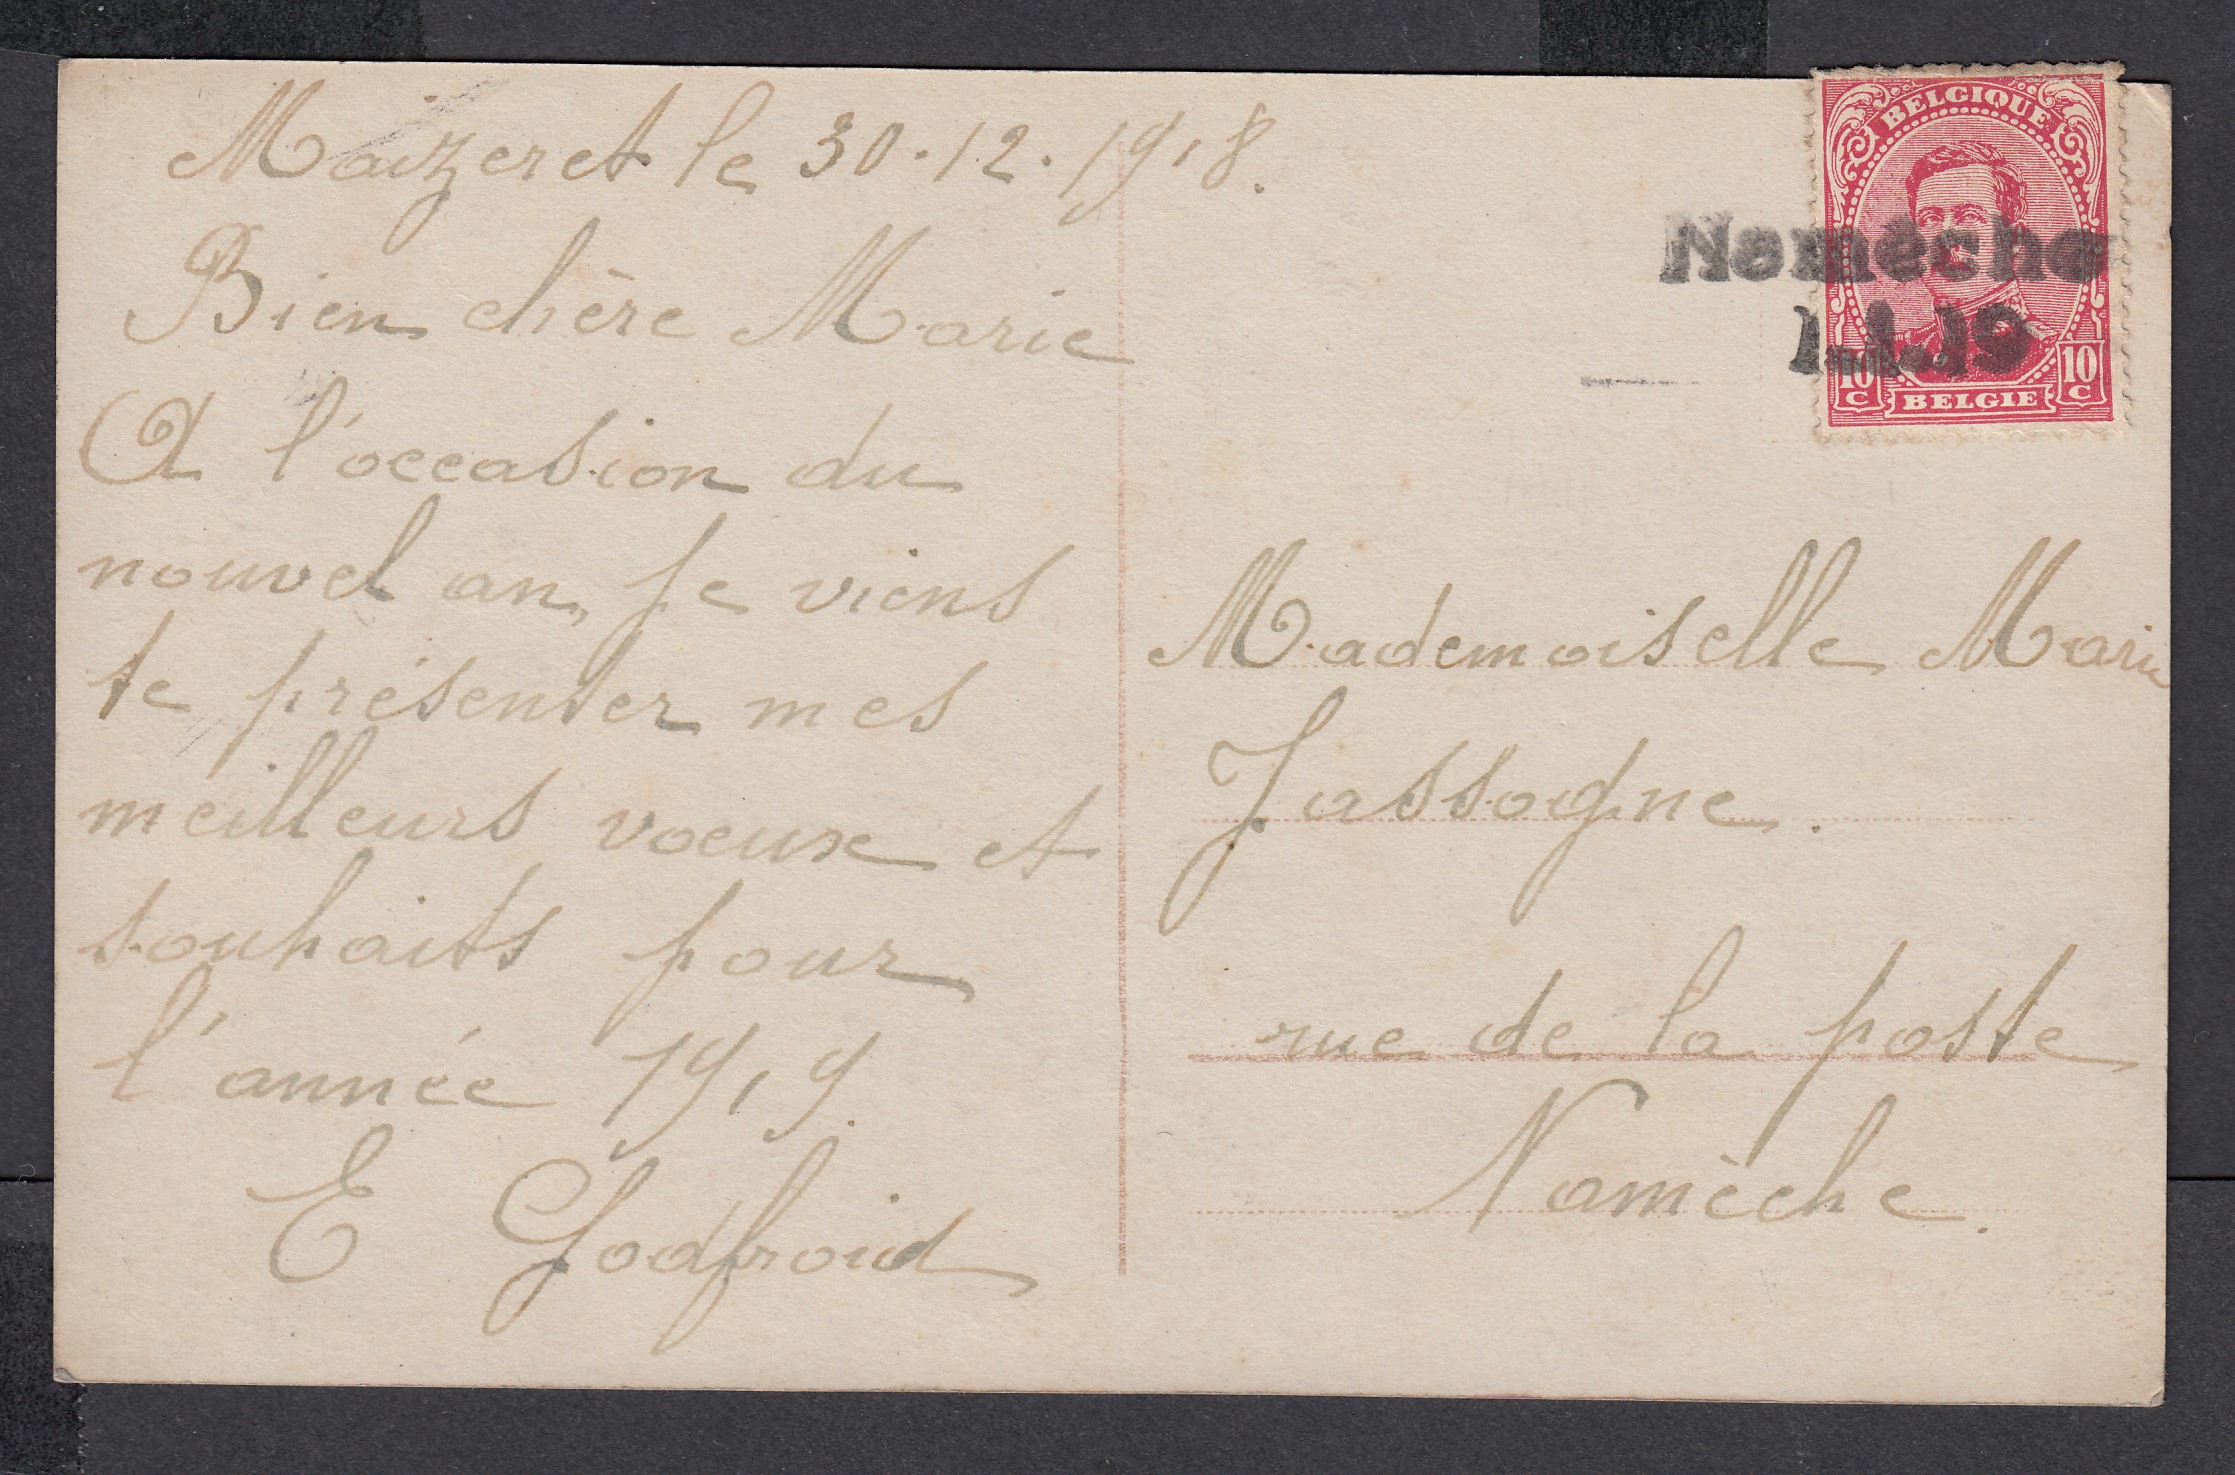 Maizeret le 30.12.1918.
Bien chère Marie
A l'occasion du
nouvel an, je viens
te présenter mes
meilleurs voeux et
souhaits pour
l'année 1919.
E Godfroid
BELGIQUE
Namêche
1.1.19
10 C
10 C
BELGIE
Mademoiselle Marie
Jassogne.
rue de la poste
Namèche.